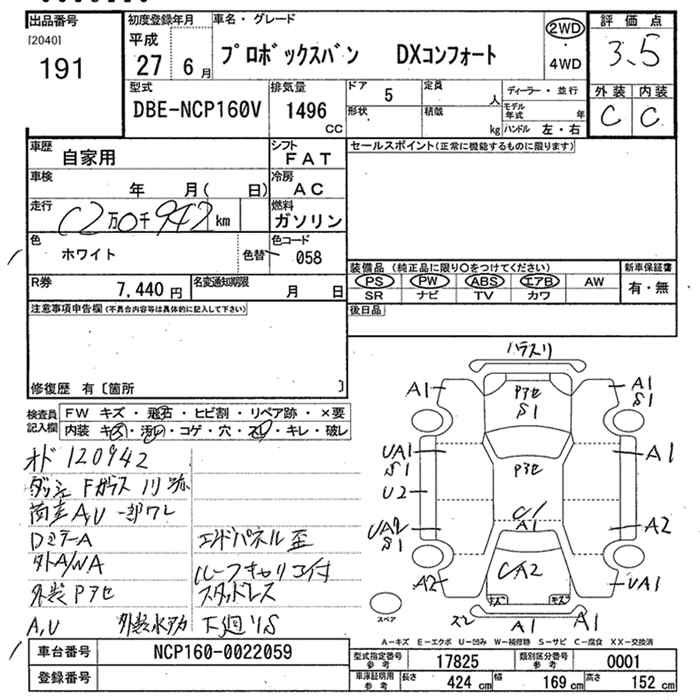 出品番号
[2040]
191
初度登録年月
平成
27 6月
車名・グレード
プロボックスバン DXコンフォート
2WD
・
4WD
評価点
3.5
型式
DBE-NCP160V
排気量
1496
CC
ドア 5
定員
人
形状
積載
kg
ディーラー・並行
モデル年式 年
ハンドル 左・右
外装 内装
C C
車歴
自家用
シフト
FAT
セールスポイント(正常に機能するものに限ります)
車検
年 月( 日)
冷房
AC
走行
12万0千942km
燃料
ガソリン
色
ホワイト
色替
色コード
058
装備品(純正品に限り○をつけてください)
新車保証書
PS PW ABS エアB AW
SR ナビ TV カワ
有・無
R券
7,440円
名変通知期限
月 日
後日品
注意事項申告欄(不具合内容等は具体的に記入して下さい)
修復歴 有〔箇所 〕
検査員
記入欄
FW キズ・飛石・ヒビ割・リペア跡・×要
内装 キズ・汚れ・コゲ・穴・スレ・キレ・破レ
オド 120942
ダッシュ Fガラス
A,U 一部ワレ
DミラーA
外A/WA
外装Pアセ
A,U
エンドパネル歪
ルーフキャリコ付
スタッドレス
下廻りS
ハラスリ
A1
Pアセ
S1
A1
S1
UA1
S1
A1
Pアセ
U2
A1
UA2
S1
A2
CA2
A2
UA1
キズ
キズ
スペア
スレ
A1
A1
A-キズ E-エクボ U-凹み W-補修跡 S-サビ C-腐食 XX-交換済
車台番号 NCP160-0022059
登録番号
型式指定番号
参考
17825
類別区分番号
参考
0001
車庫証明用
参考
長さ 424 cm
幅 169 cm
高さ 152 cm